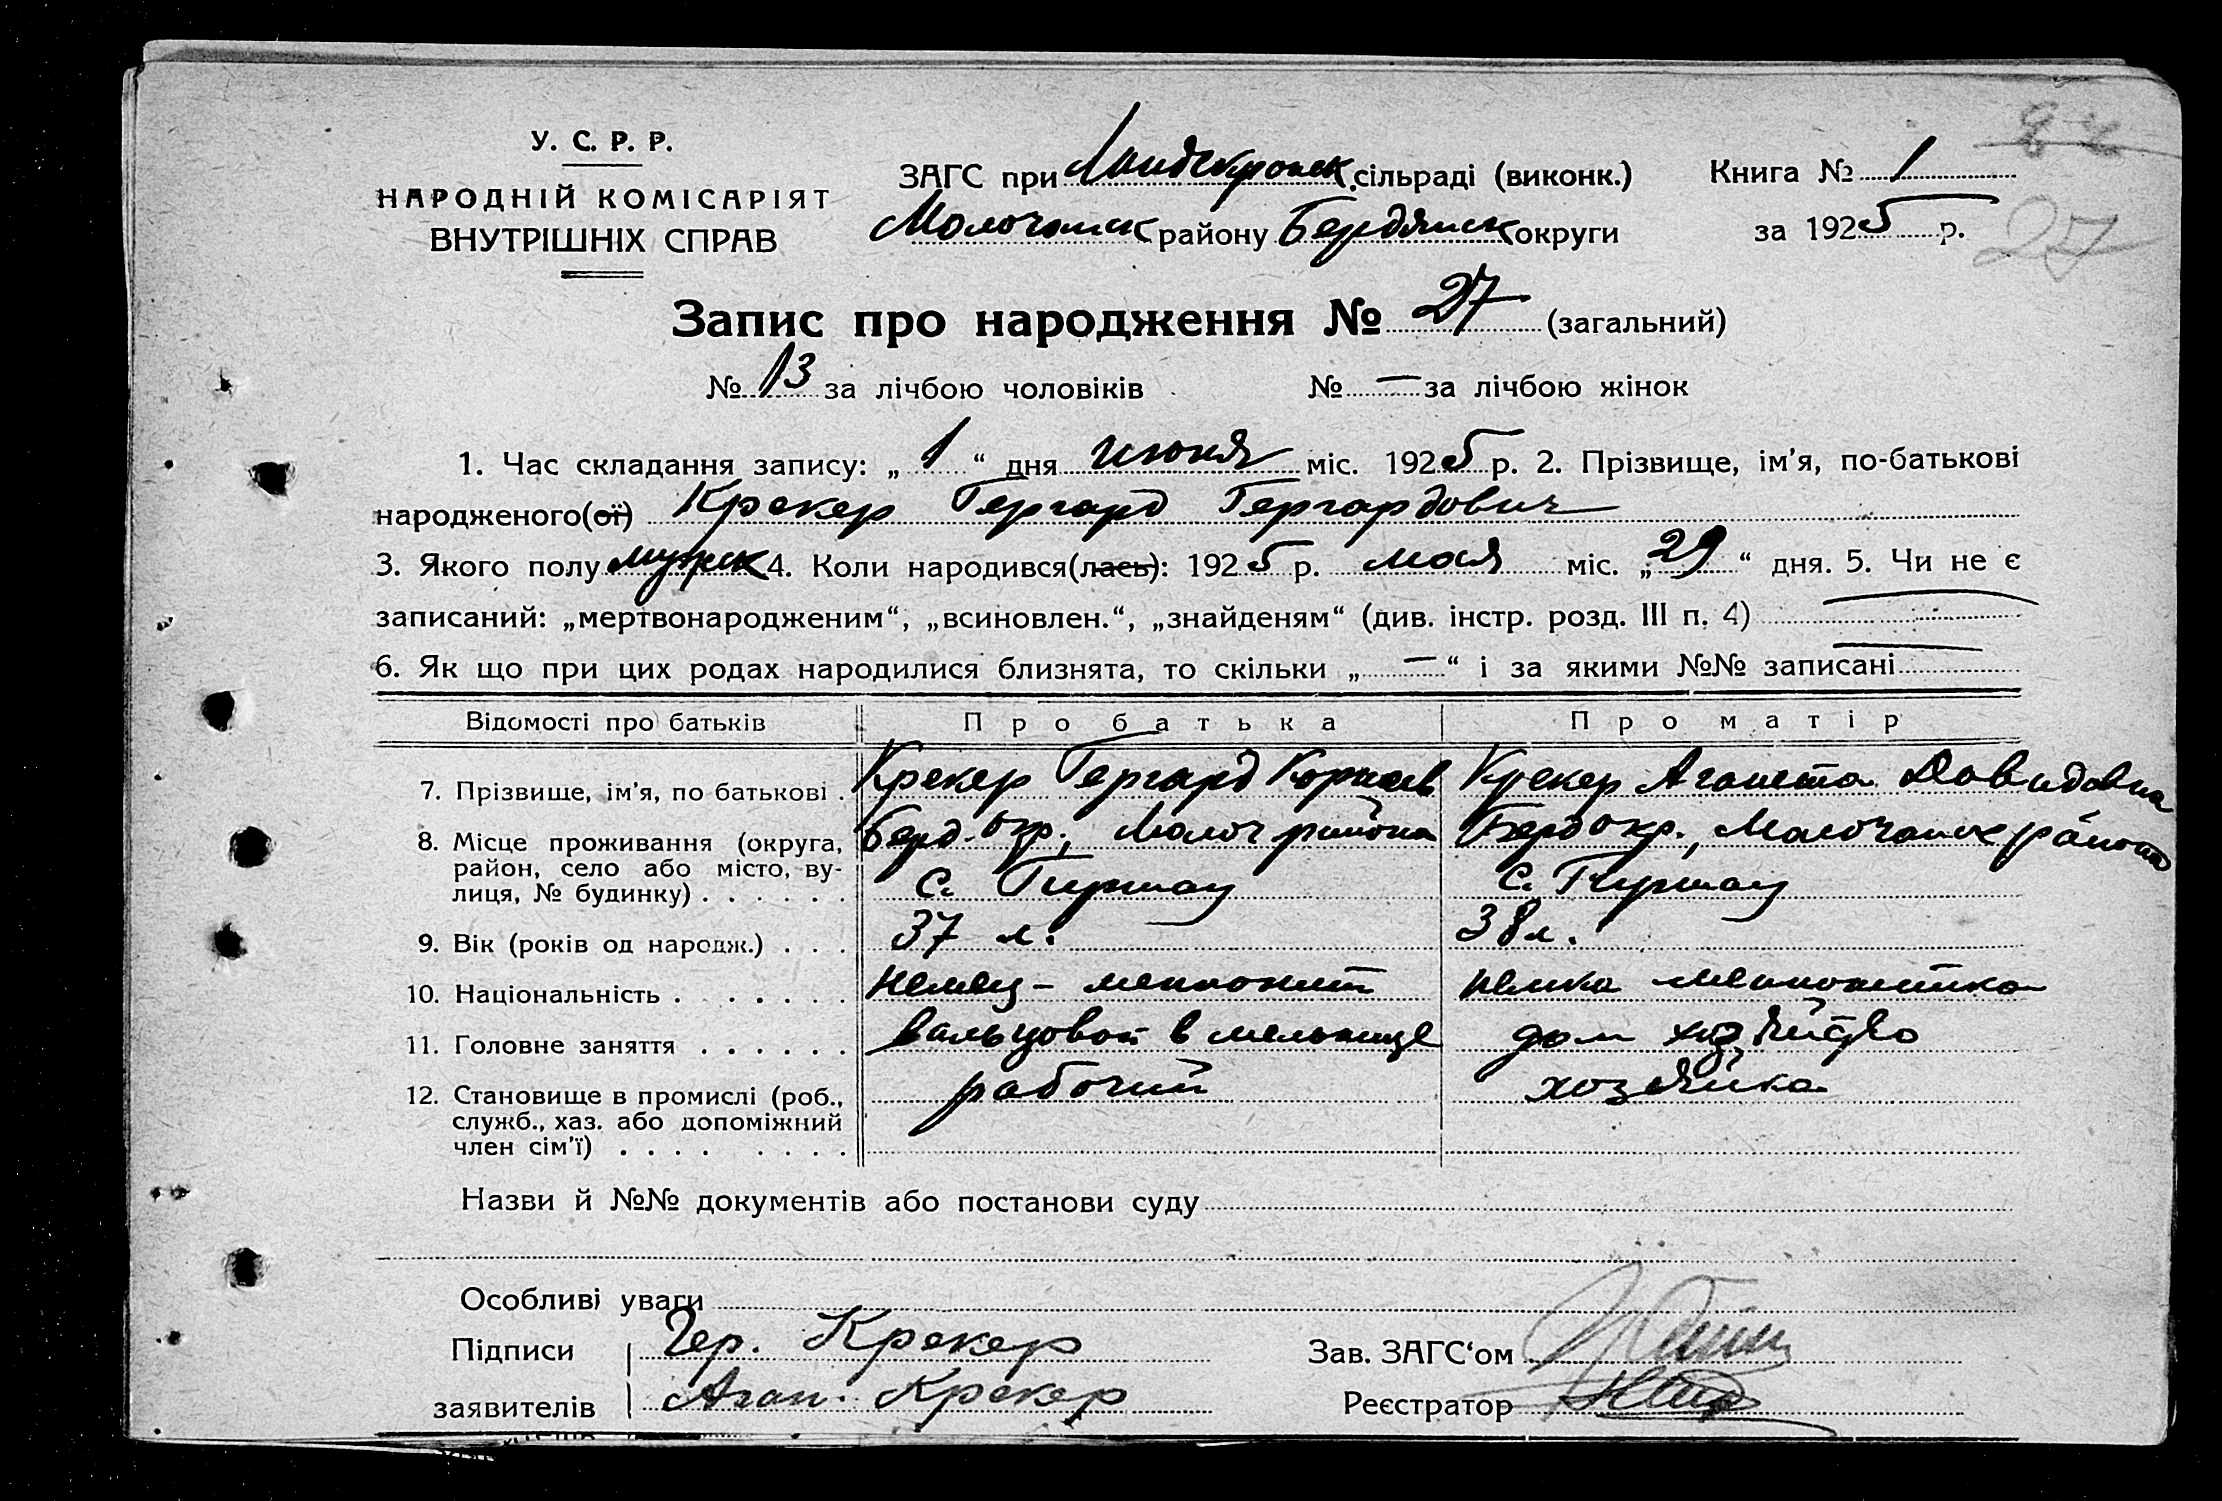 У. С. Р. Р.
НАРОДНІЙ КОМІСАРІЯТ
ВНУТРІШНІХ СПРАВ
ЗАГС при Ландскронск. сільраді (виконк.)
Молочанск району Бердянск округи
Книга № 1
за 1925 р.
27
Запис про народження № 27 (загальний)
№ 13 за лічбою чоловіків № — за лічбою жінок
1. Час складання запису: „ 1 “ дня июня міс. 1925 р. 2. Прізвище, ім’я, по-батькові
народженого(ої) Крекер Гергард Гергардович
3. Якого полу мужск 4. Коли народився(лась): 1925 р. мая міс. „ 29 “ дня. 5. Чи не є
записаний: „мертвонародженим“, „всиновлен.“, „знайденям“ (див. інстр. розд. III п. 4) —
6. Як що при цих родах народилися близнята, то скільки „ — “ і за якими №№ записані —
Відомості про батьків Про батька Про матір
7. Прізвище, ім’я, по батькові . Крекер Гергард Корнеев Крекер Аганета Давидовна
8. Місце проживання (округа, район, село або місто, вулиця, № будинку) . . . . . . Берд. окр., Молоч района Берд окр., Молочанск района
с. Гиршау с. Гиршау
9. Вік (років од народж.) . . . 37 л. 38 л.
10. Національність . . . . . . . немец - меннонит немка меннонитка
11. Головне заняття . . . . . . вальцовой в мельнице дом хозяйство
12. Становище в промислі (роб., служб., хаз. або допоміжний член сім’ї) . . . . . . . . рабочий хозяйка
Назви й №№ документів або постанови суду
Особливі уваги
Підписи Гер. Крекер
заявителів Аган. Крекер
Зав. ЗАГС‘ом
Реєстратор